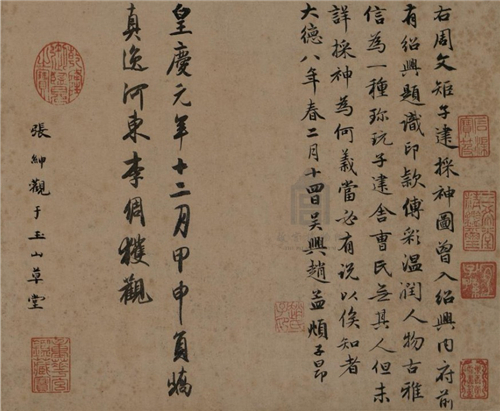 右周文矩子建採神圖曾入紹興內府前
有紹興題識印款傅彩温潤人物古雅
信為一種珎玩子建舍曹氏無其人但未
詳採神為何義當必有说以俟知者
大德八年春二月十四日吳興趙孟頫子昂
皇慶元年十二月甲申員嶠
真逸河東李倜獲觀
張紳觀于玉山草堂